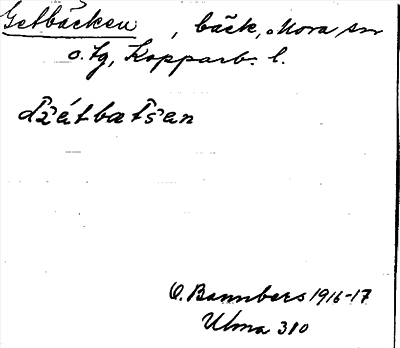 Getbäcken, bäck, Mora sn
o. tg, Kopparb. l.
dz̆étbatšan
O. Bannbers 1916-17
Ulma 310